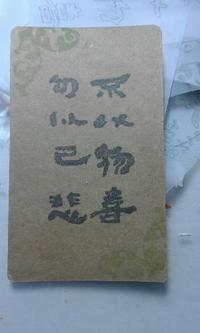 不以物喜
勿以己悲